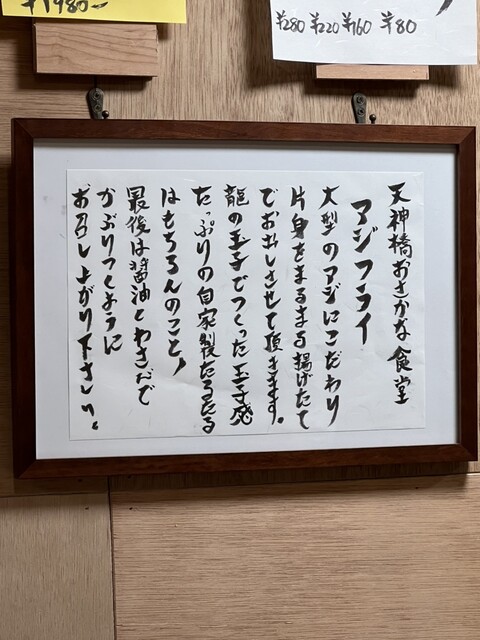 ¥1980-
¥280 ¥220 ¥160 ¥80
天神橋おさかな食堂
アジフライ
大型のアジにこだわり
片身をまるまる揚げたて
でお出しさせて頂きます。
龍の玉子でつくった玉子感
たっぷりの自家製たるたる
はもちろんのこと、
最後は醤油とわさびで
かぶりつくように
お召し上がり下さい。